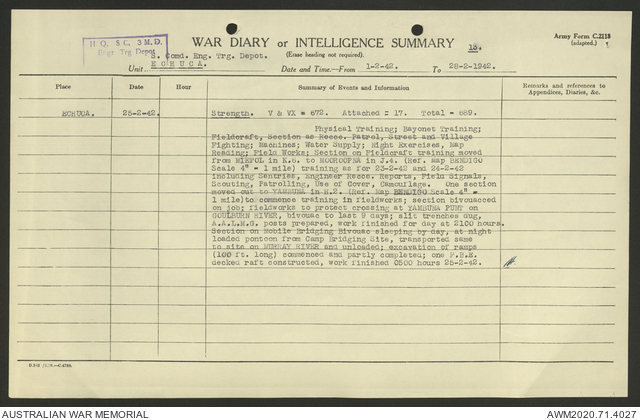 WAR DIARY or INTELLIGENCE SUMMARY 13.
(Erase heading not required).
Army Form C.2118
(adapted.)
H.Q. S.C. 3 M.D.
Engr Trg Depot
Unit S. Comd. Eng. Trg. Depot.
ECHUCA.
Date and Time.—From 1-2-42. To 28-2-1942.
Place Date Hour Summary of Events and Information Remarks and references to Appendices, Diaries, &c.
ECHUCA. 25-2-42. Strength. V & VX = 672. Attached : 17. Total - 689.
Physical Training; Bayonet Training;
Fieldcraft, Section as Recce. Patrol, Street and Village
Fighting; Machines; Water Supply; Night Exercises, Map
Reading; Field Works; Section on Fieldcraft training moved
from in K.6. to MOOROOPNA in J.4. (Ref. Map BENDIGO
Scale 4" - 1 mile) training as for 23-2-42 and 24-2-42
including Sentries, Engineer Recce. Reports, Field Signals,
Scouting, Patrolling, Use of Cover, Camouflage. One section
moved out to YAMBUNA in H.2. (Ref. Map BENDIGO Scale 4" -
1 mile) to commence training in fieldworks; section bivouacced
on job; fieldworks to protect crossing at YAMBUNA PUNT on
GOULBURN RIVER, bivouac to last 9 days; slit trenches dug,
A.A.L.M.G. posts prepared, work finished for day at 2100 hours.
Section on Mobile Bridging Bivouac sleeping by day, at night
loaded pontoon from Camp Bridging Site, transported same
to site on MURRAY RIVER and unloaded; excavation of ramps
(100 ft. long) commenced and partly completed; one F.B.E.
decked raft constructed, work finished 0500 hours 25-2-42.
AUSTRALIAN WAR MEMORIAL AWM2020.71.4027